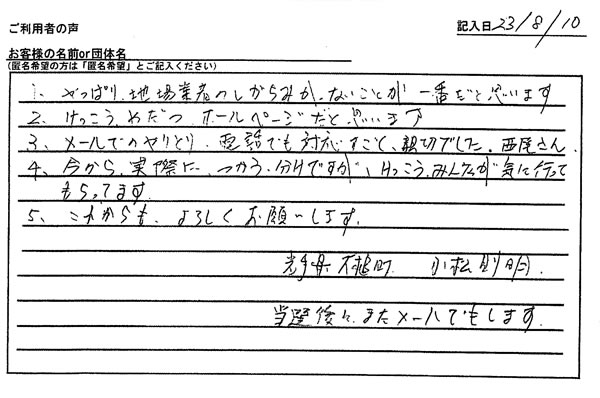 ご利用者の声
記入日23/8/10
お客様の名前or団体名
(匿名希望の方は「匿名希望」とご記入ください)
1、やっぱり、地場業者のしがらみが、ないことが 一番だと思います
2、けっこう、めだつ、ホールページだと思います
3、メールでのやりとり、電話でも対応すごく、親切でした。西尾さん、
4、今から、実際に、つかう、分けですが、けっこう、みんなが気に行って
もらってます。
5、これからも、よろしくお願いします。
小松
当選後に、またメールでもします。